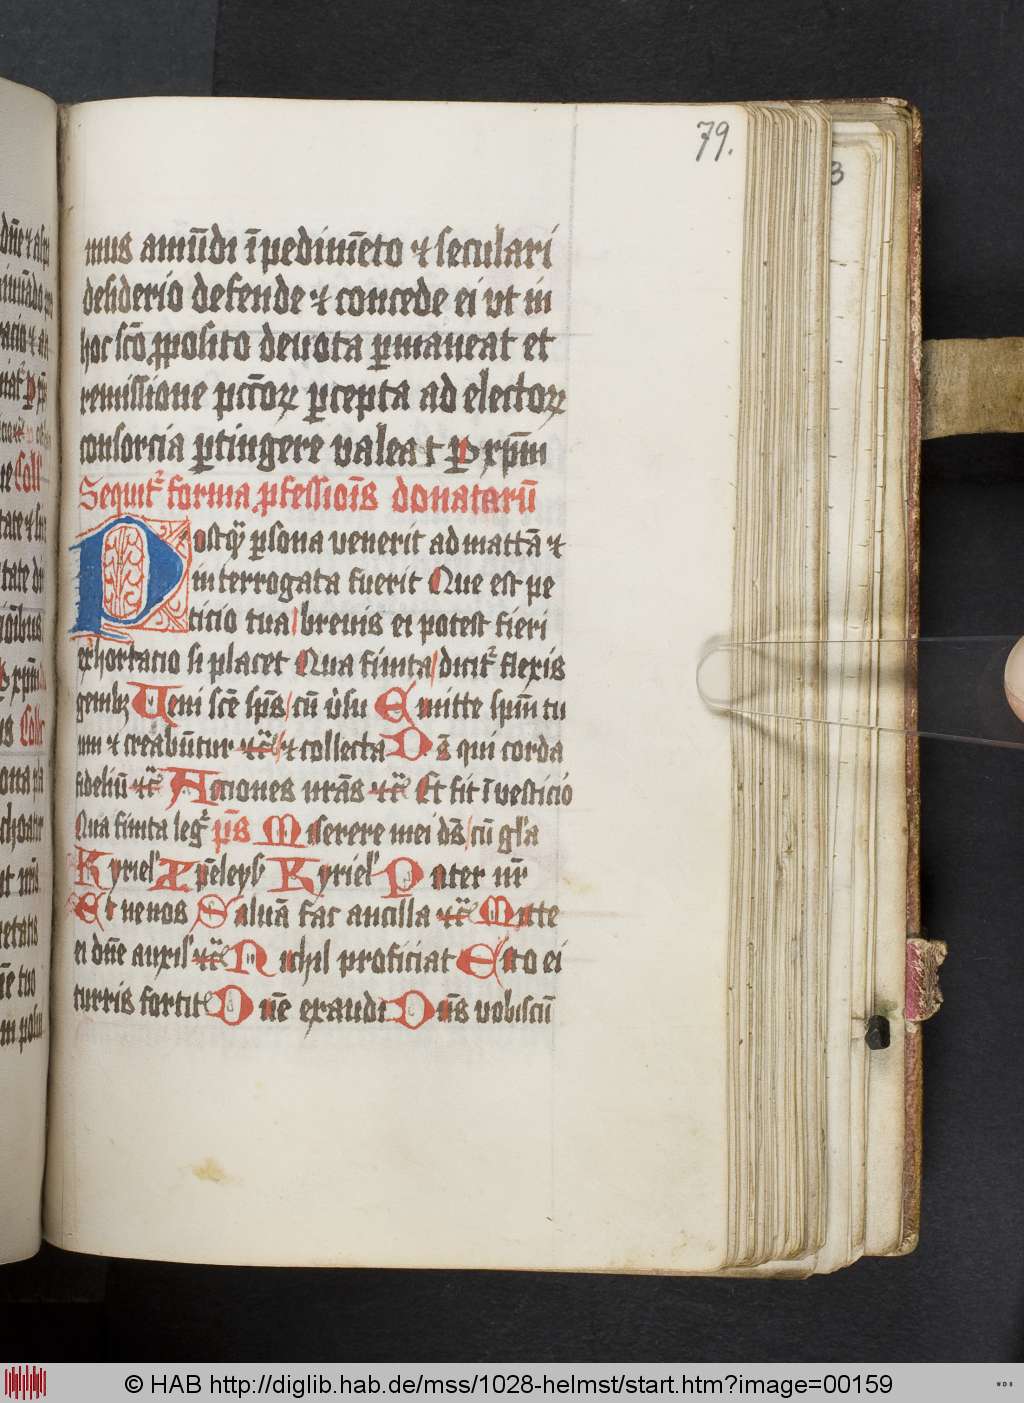 79.
mus a mūdi īpedimēto ⁊ seculari
desiderio defende ⁊ concede ei vt in
hoc scō ꝓposito deuota ꝑmaneat et
remissione pctōꝝ ꝑcepta ad electoꝝ
consorcia ꝑtingere valeat ꝑ xp̄m
Sequit᷑ forma ꝓfessiois donatarū
Postq̄ ꝑsona venerit ad mattā ⁊
interrogata fuerit Que est pe
ticio tua breuis ei potest fieri
exhortacio si placet Qua finita dicit᷑ flexis
genibꝫ Veni scē sp̄s cū v̉su Emitte sp̄m tu
um ⁊ creabūtur ⁊c̄ ⁊ collecta Ds̄ qui corda
fideliū ⁊c̄ Acciones nr̄as ⁊c̄ Et fit īvesticio
Qua finita leg᷑ ps̄ Miserere mei ds̄ cū gl'a
Kyriel' Xp̄eleys̄ Kyriel' Pater nr̄
Et ne nos Saluā fac ancilla ⁊c̄ Mitte
ei dn̄e auxil' ⁊c̄ Nichil proficiat Esto ei
turris fortit' Dn̄e exaudi Dn̄s vobiscū
3
© HAB http://diglib.hab.de/mss/1028-helmst/start.htm?image=00159